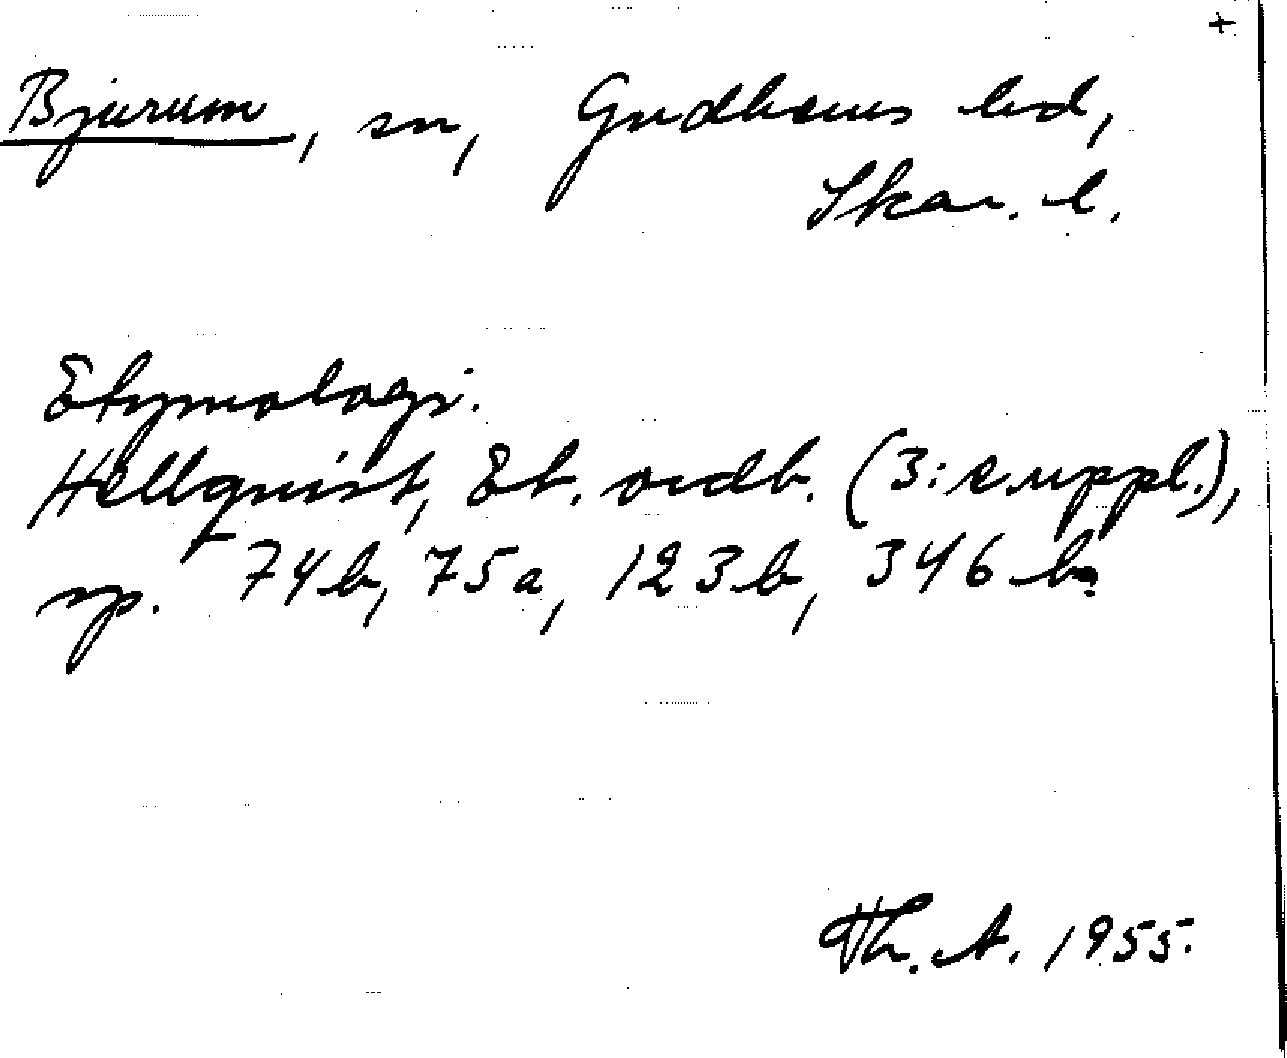 +
Bjurum, sn, Gudhems hd,
Skar. l.
Etymologi.
Hellquist, Et. ordb. (3:e uppl.),
sp. 74b, 75a, 123b, 346b.
Th. A. 1955.